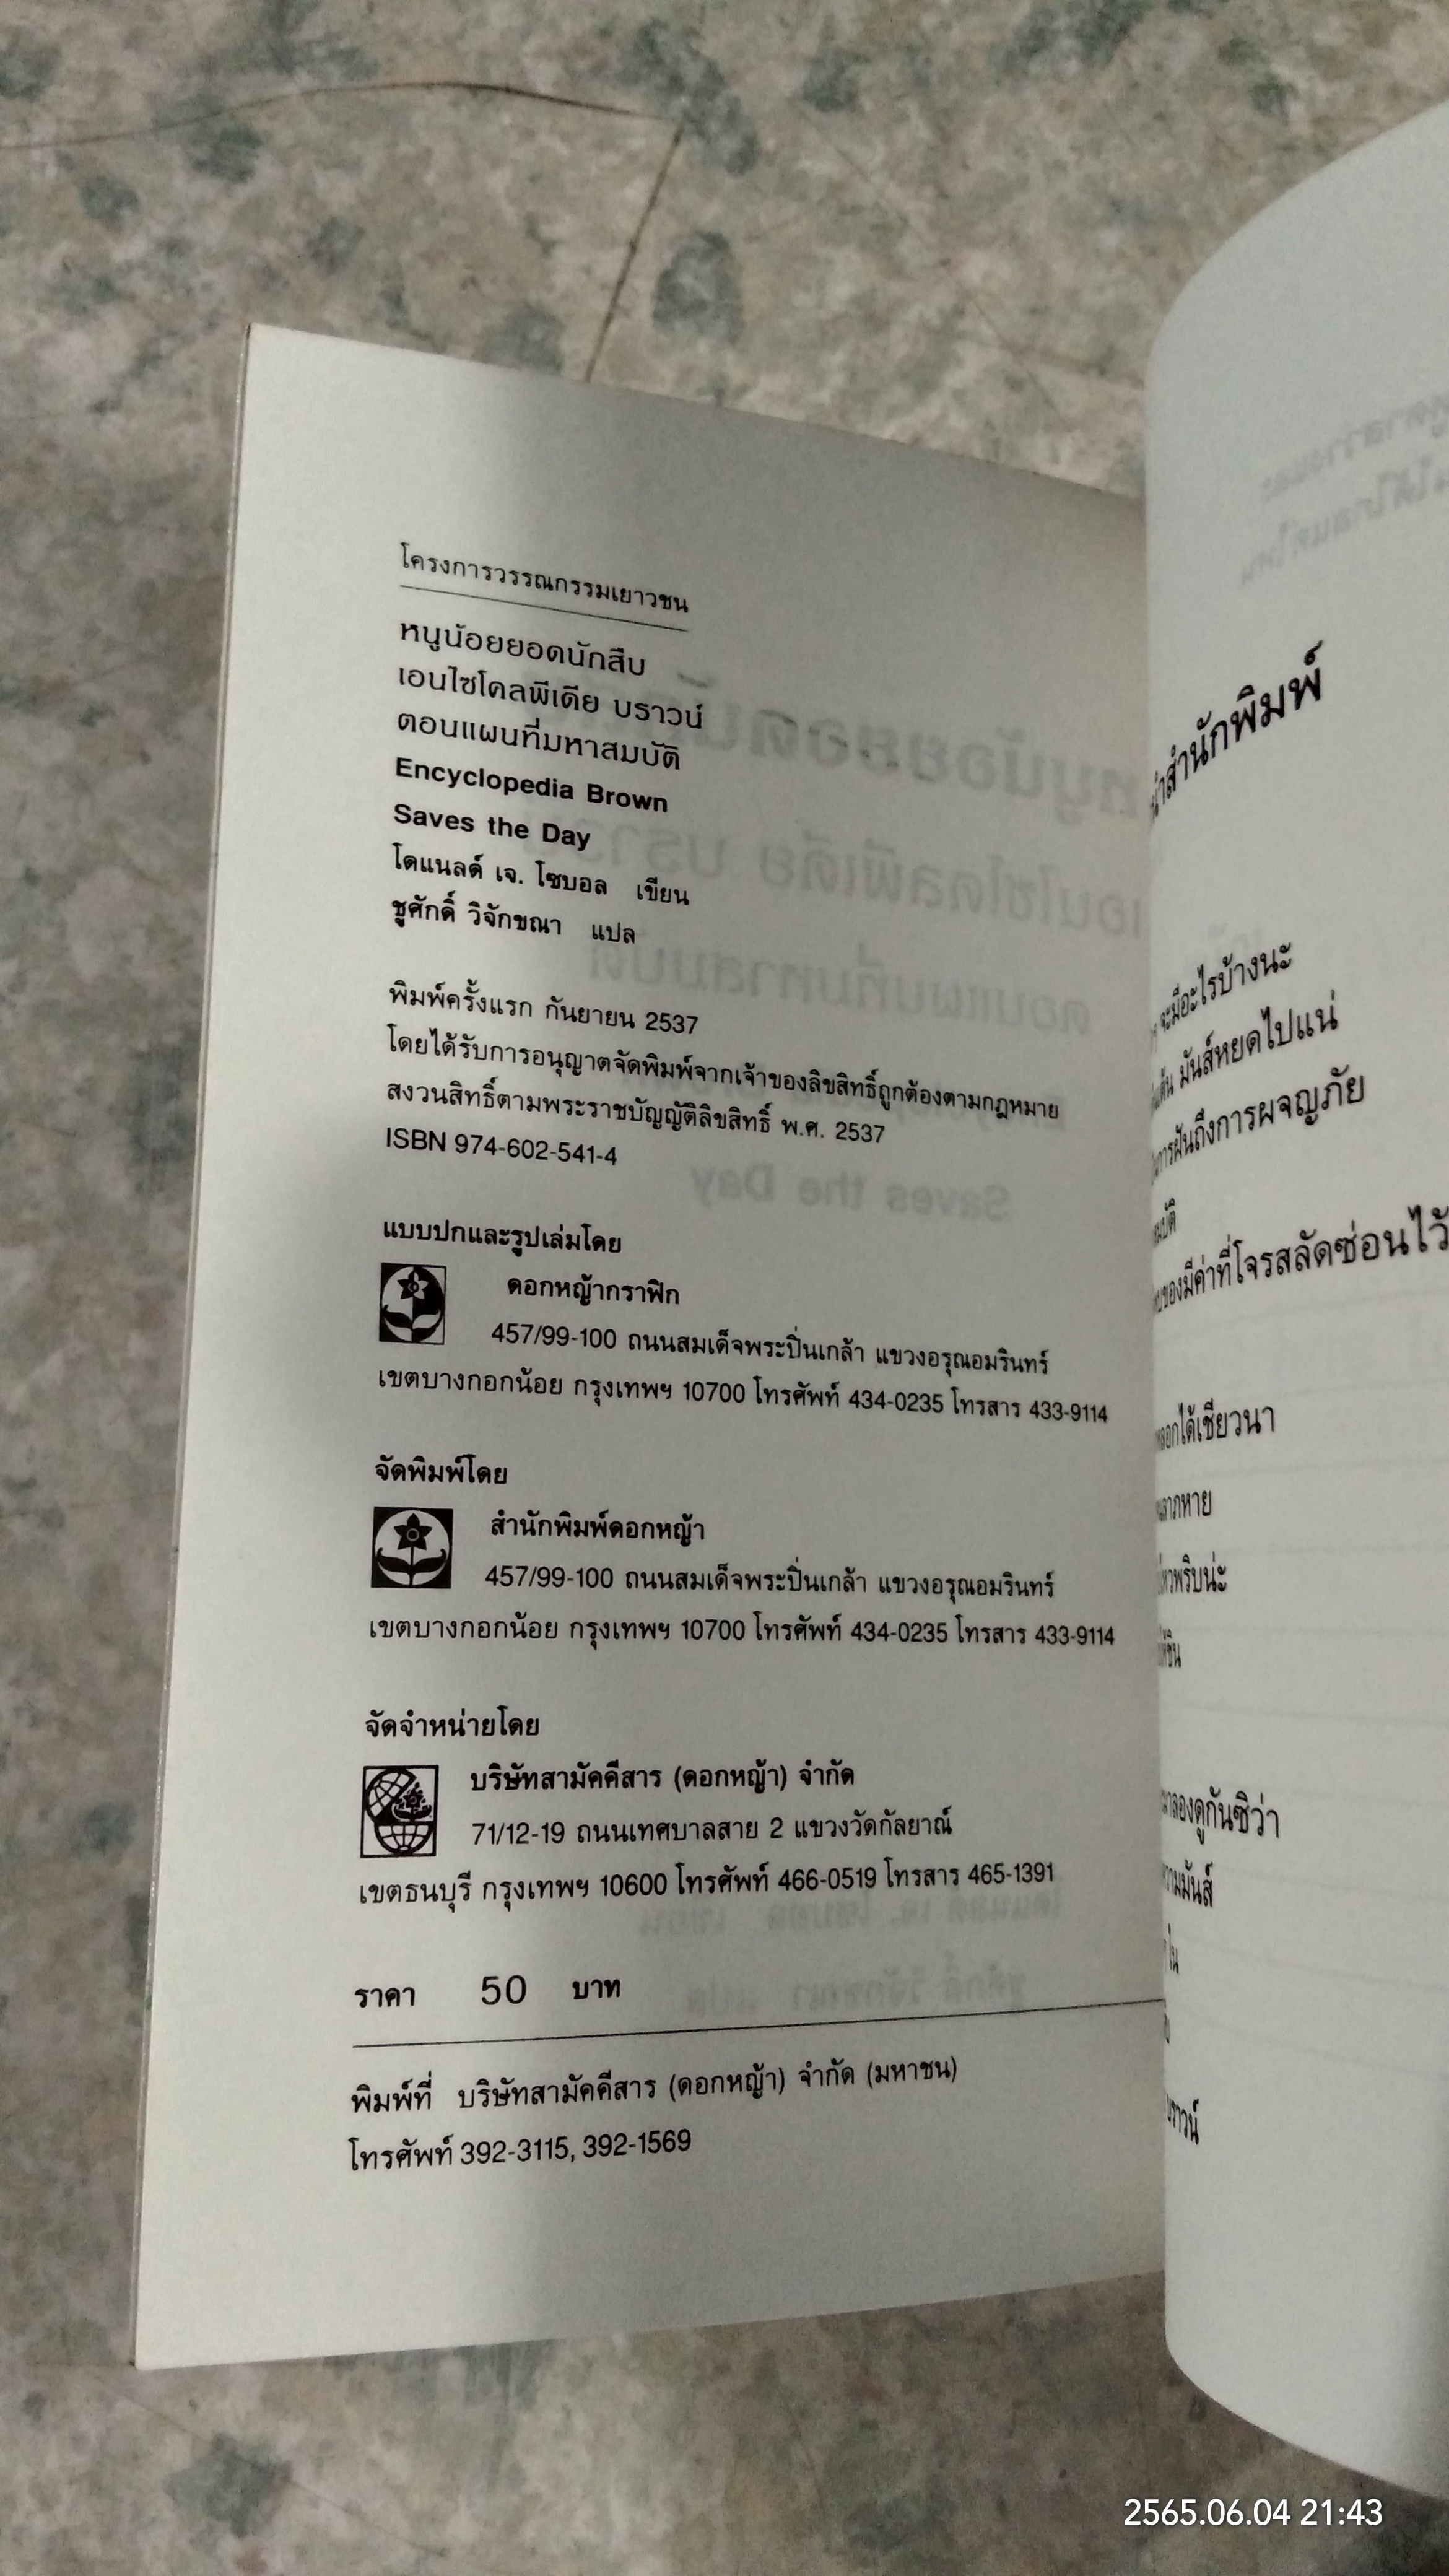 โครงการวรรณกรรมเยาวชน
หนูน้อยยอดนักสืบ
เอนไซโคลพีเดีย บราวน์
ตอนแผนที่มหาสมบัติ
Encyclopedia Brown
Saves the Day
โดแนลด์ เจ. โซบอล เขียน
ชูศักดิ์ วิจักขณา แปล
พิมพ์ครั้งแรก กันยายน 2537
โดยได้รับการอนุญาตจัดพิมพ์จากเจ้าของลิขสิทธิ์ถูกต้องตามกฎหมาย
สงวนสิทธิ์ตามพระราชบัญญัติลิขสิทธิ์ พ.ศ. 2537
ISBN 974-602-541-4
แบบปกและรูปเล่มโดย
ดอกหญ้ากราฟิก
457/99-100 ถนนสมเด็จพระปิ่นเกล้า แขวงอรุณอมรินทร์
เขตบางกอกน้อย กรุงเทพฯ 10700 โทรศัพท์ 434-0235 โทรสาร 433-9114
จัดพิมพ์โดย
สำนักพิมพ์ดอกหญ้า
457/99-100 ถนนสมเด็จพระปิ่นเกล้า แขวงอรุณอมรินทร์
เขตบางกอกน้อย กรุงเทพฯ 10700 โทรศัพท์ 434-0235 โทรสาร 433-9114
จัดจำหน่ายโดย
บริษัทสามัคคีสาร (ดอกหญ้า) จำกัด
71/12-19 ถนนเทศบาลสาย 2 แขวงวัดกัลยาณ์
เขตธนบุรี กรุงเทพฯ 10600 โทรศัพท์ 466-0519 โทรสาร 465-1391
ราคา 50 บาท
พิมพ์ที่ บริษัทสามัคคีสาร (ดอกหญ้า) จำกัด (มหาชน)
โทรศัพท์ 392-3115, 392-1569
สำนักพิมพ์
จะมีอะไรบ้างนะ
มันส์หยดไปแน่
การฝันถึงการผจญภัย
ของมีค่าที่โจรสลัดซ่อนไว้
ได้เชียวนา
ลองดูกันซิว่า
ใน
2565.06.04 21:43